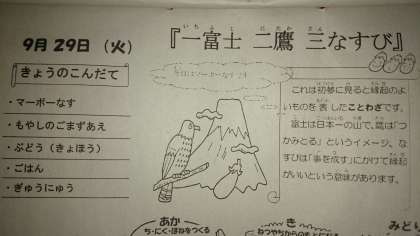 9月29日（火）
『一富士 二鷹 三なすび』
いちふじ にたか さん
きょうのこんだて
・マーボーなす
・もやしのごまずあえ
・ぶどう（きょほう）
・ごはん
・ぎゅうにゅう
これは初夢に見ると縁起のよ
いものを表したことわざです。
富士は日本一の山で、鷹は「つ
かみとる」というイメージ、な
すびは「事を成す」にかけて縁起
がいいという意味があります。
あか
ち・にく・ほねをつくる
き
みど